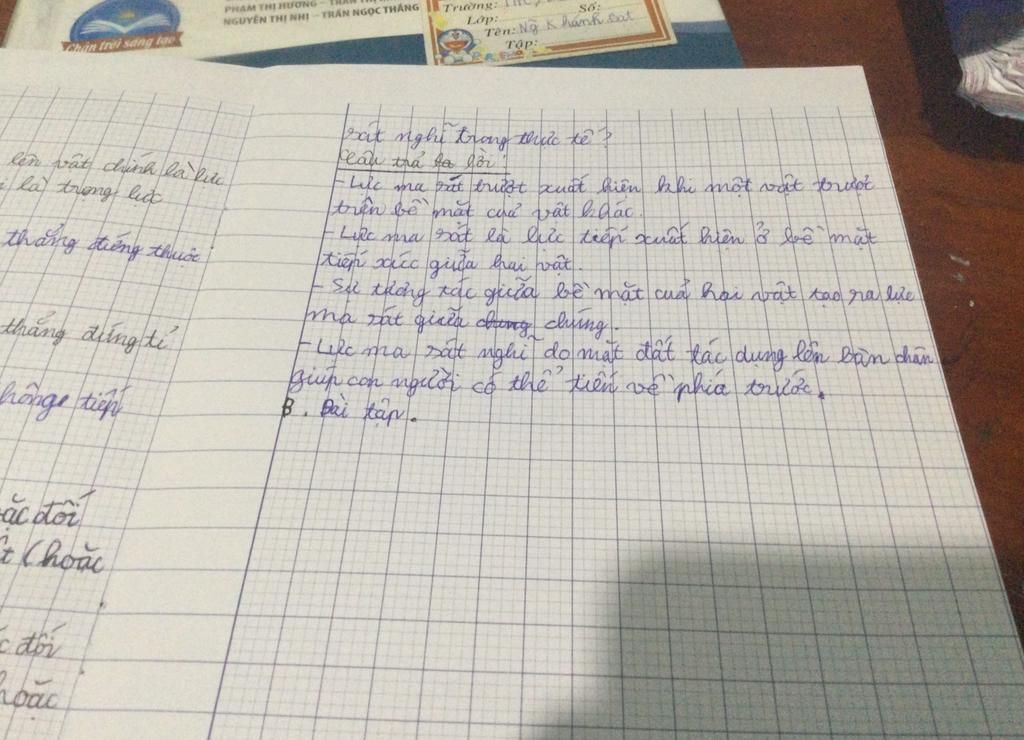 PHẠM THỊ HƯƠNG -
NGUYỄN THỊ NHỊ - TRẦN NGỌC THẮNG
Chân trời sáng tạo
Trường: THC
Lớp: Số:
Tên: Ng Khánh Đạt
Tập:
lên vật chính là lực
là trọng lực
thẳng đứng thước
thẳng đứng
tiếp
đối
(hoặc
đối
hoặc
sát nghĩ trong thực tế?
Câu trả lời:
- Lực ma sát trượt xuất hiện khi một vật trượt
trên bề mặt cuả vật khác.
- Lực ma sát là lực tiếp xuất hiện ở bề mặt
tiếp xúc giữa hai vật.
- Sự tương tác giữa bề mặt cuả hai vật tạo ra lực
ma sát giữa chung chúng.
- Lực ma sát nghĩ do mặt đất tác dụng lên bàn chân
giúp con người có thể tiến về phía trước.
B. Bài tập.